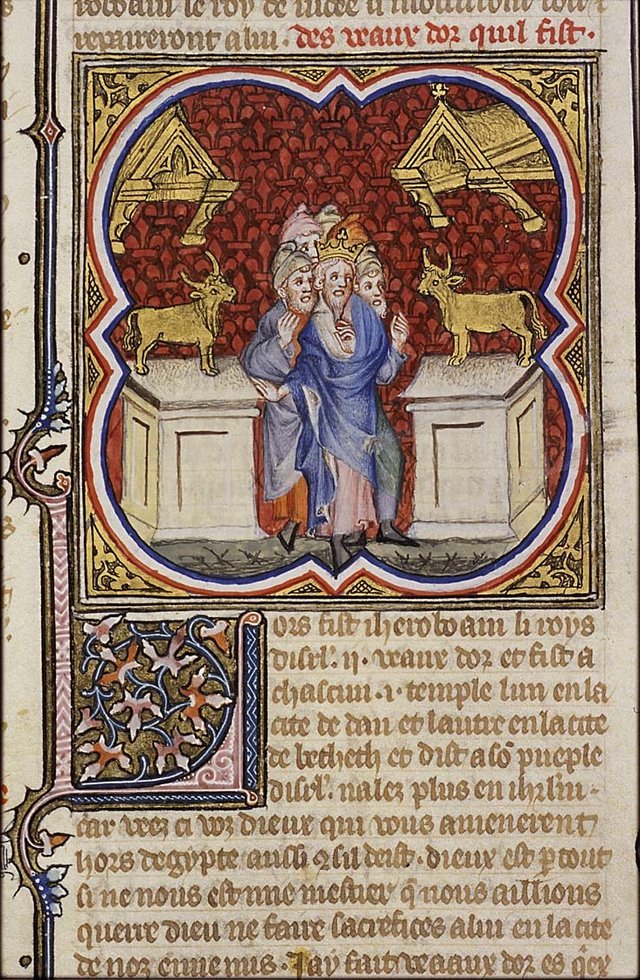 repaireront a lui. des veaux dor quil fist.
Lors fist iheroboam li roys
disrl'. ij. veaux dor et fist a
chascun .i. temple lun en la
cite de dan et lautre en la cite
de betheth et dist a so pueple
disrl'. nalez plus en ihrlm.
car veez ci voz dieux qui vous amenerent
hors degypte aussi q sil deist. dieux est p tout
si ne nous est mie mestier q nous aillions
querre dieu ne faire sacrefices a lui en la cite
de noz ennemis. Jay fait veaux dor es